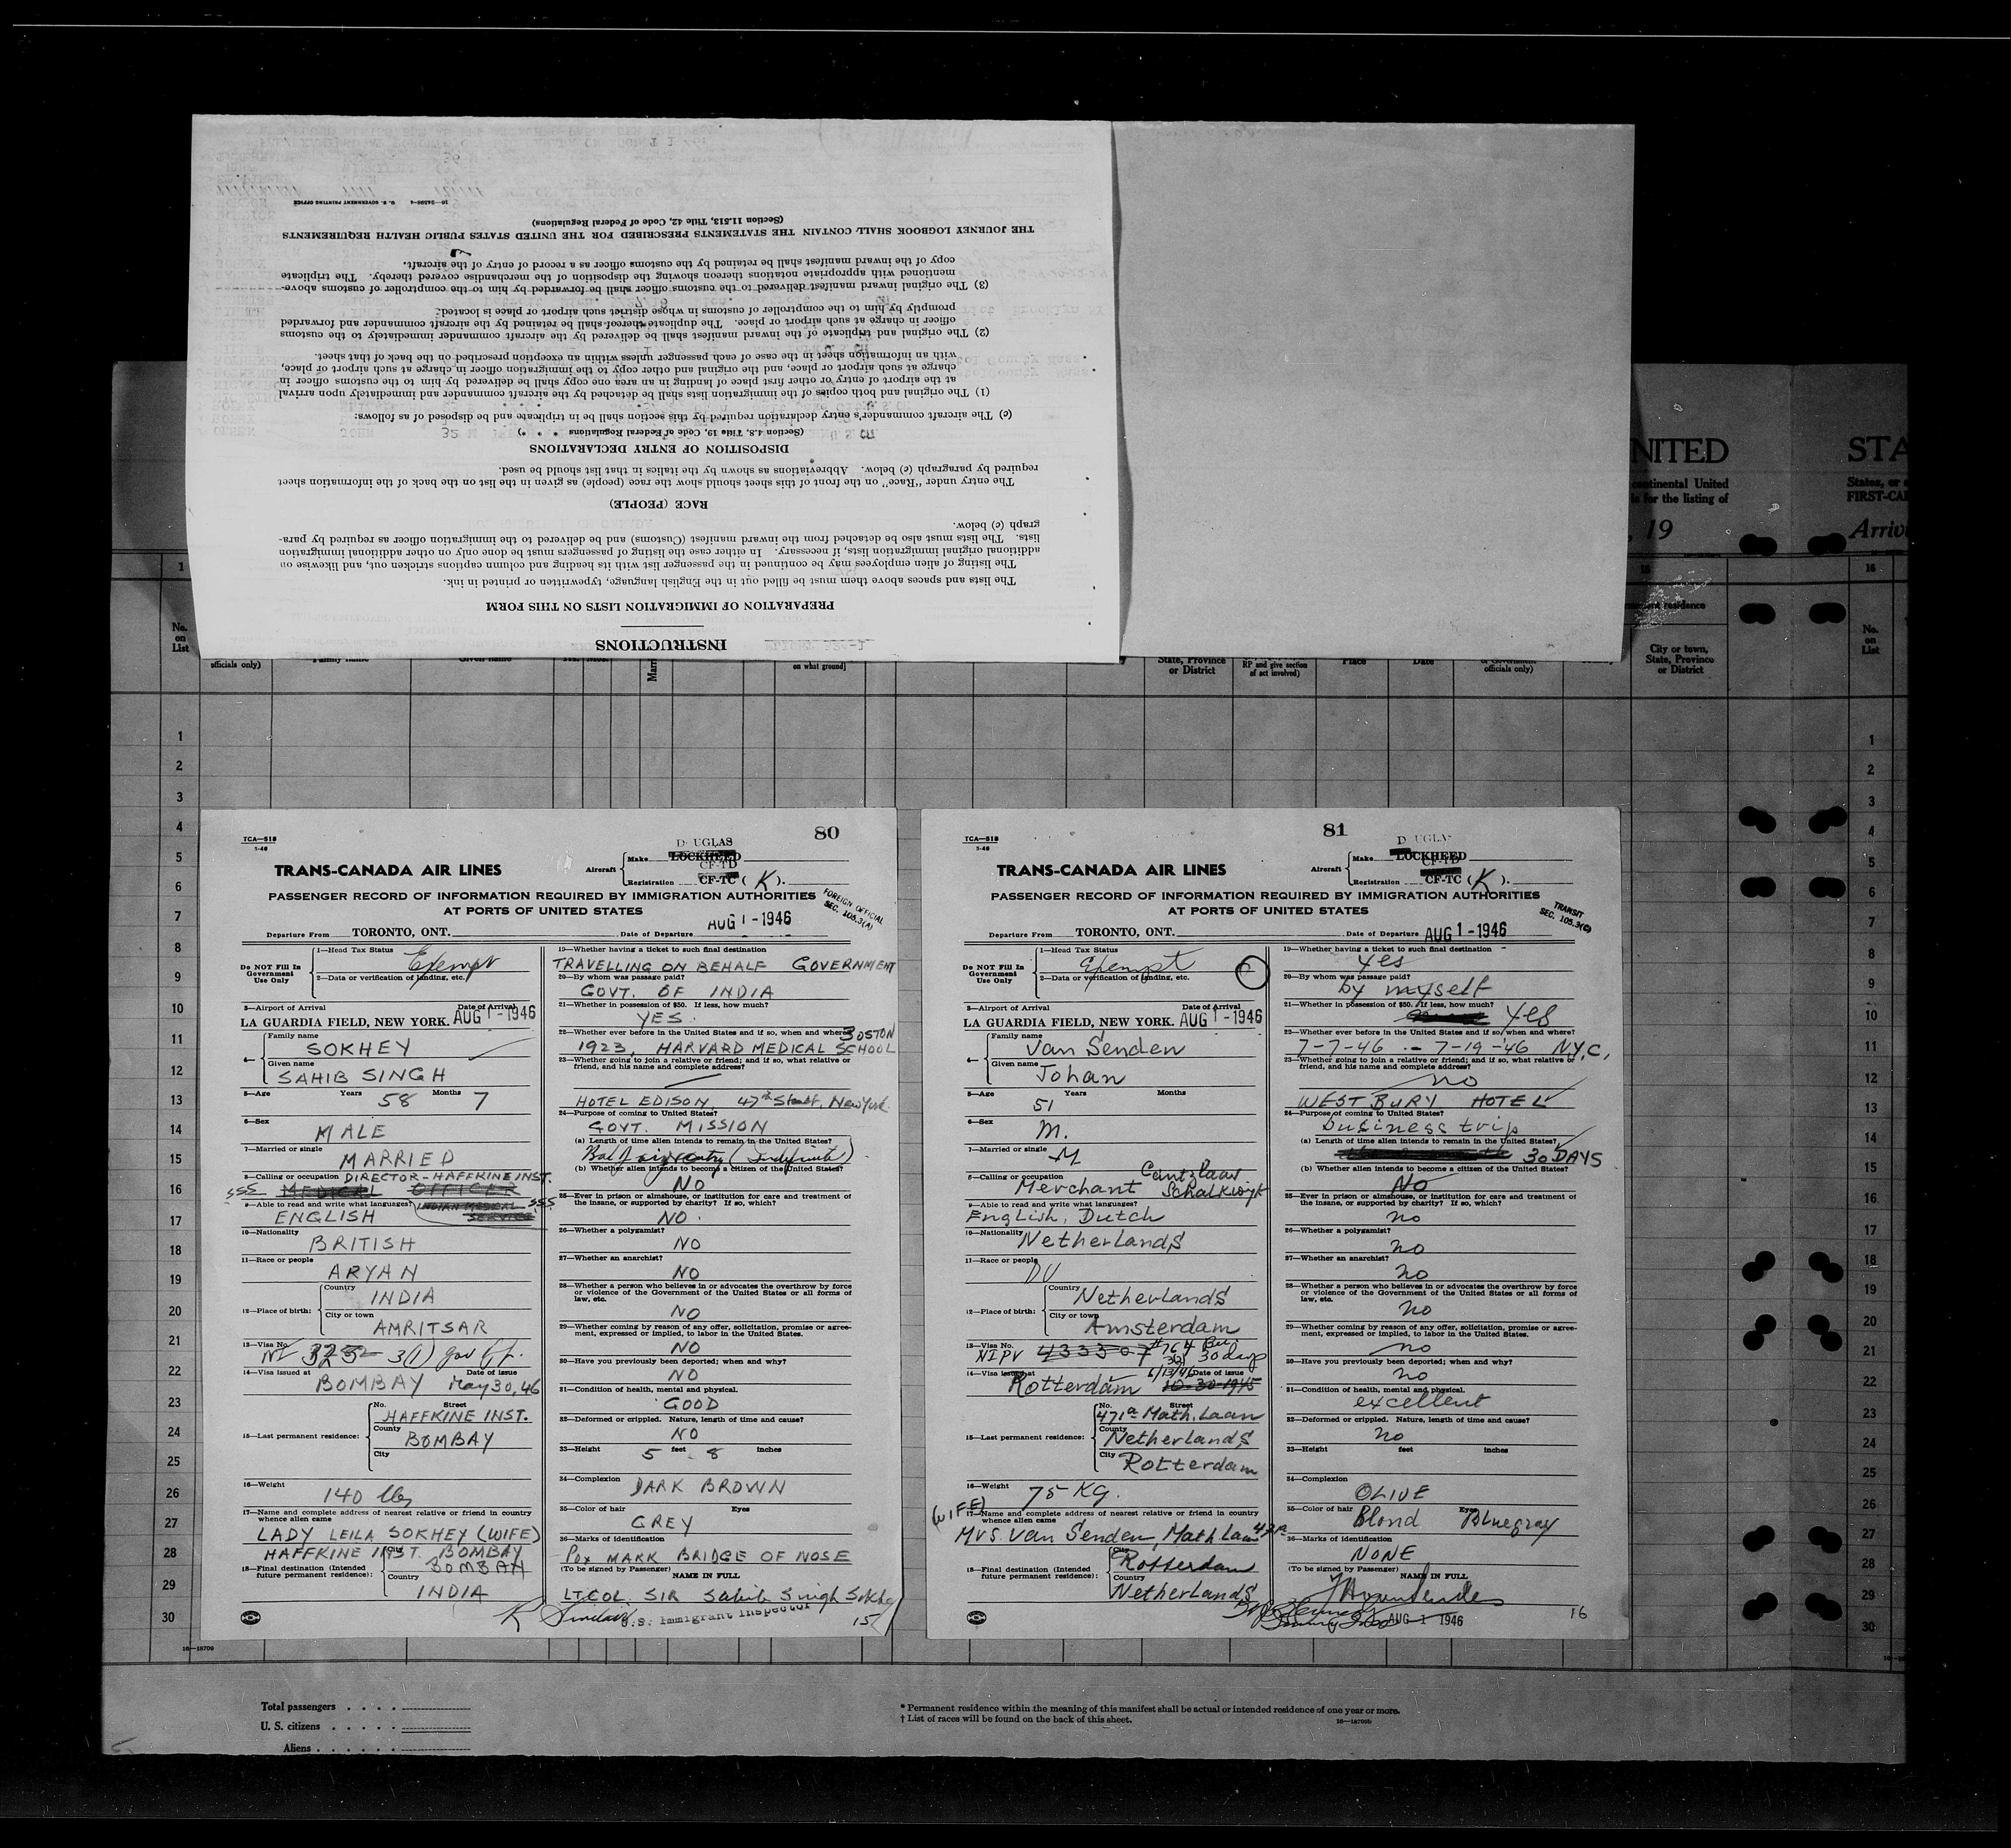 INSTRUCTIONS
PREPARATION OF IMMIGRATION LISTS ON THIS FORM
The lists and spaces above them must be filled out in the English language, typewritten or printed in ink.
The listing of alien employees may be continued in the passenger list with its heading and column captions stricken out, and likewise on
additional original immigration lists, if necessary. In either case the listing of passengers must be done only on other additional immigration
lists. The lists must also be detached from the inward manifest (Customs) and be delivered to the immigration officer as required by para-
graph (c) below.
RACE (PEOPLE)
The entry under "Race" on the front of this sheet should show the race (people) as given in the list on the back of the information sheet
required by paragraph (c) below. Abbreviations as shown by the italics in that list should be used.
DISPOSITION OF ENTRY DECLARATIONS
(Section 4.8, Title 19, Code of Federal Regulations * * *)
(c) The aircraft commander's entry declaration required by this section shall be in triplicate and be disposed of as follows:
(1) The original and both copies of the immigration lists shall be detached by the aircraft commander and immediately upon arrival
at the airport of entry or other first place of landing in an area one copy shall be delivered by him to the customs officer in
charge at such airport or place, and the original and other copy to the immigration officer in charge at such airport or place,
with an information sheet in the case of each passenger unless within an exception prescribed on the back of that sheet.
(2) The original and triplicate of the inward manifest shall be delivered by the aircraft commander immediately to the customs
officer in charge at such airport or place. The duplicate thereof shall be retained by the aircraft commander and forwarded
promptly by him to the comptroller of customs in whose district such airport or place is located.
(3) The original inward manifest delivered to the customs officer shall be forwarded by him to the comptroller of customs above-
mentioned with appropriate notations thereon showing the disposition of the merchandise covered thereby. The triplicate
copy of the inward manifest shall be retained by the customs officer as a record of entry of the aircraft.
THE JOURNEY LOGBOOK SHALL CONTAIN THE STATEMENTS PRESCRIBED FOR THE UNITED STATES PUBLIC HEALTH REQUIREMENTS
(Section 11.513, Title 42, Code of Federal Regulations)
U. S. GOVERNMENT PRINTING OFFICE
NITED
STA
continental United
States, or a
is for the listing of
FIRST-CA
, 19
Arriv
16
No.
on
List
officials only)
Family name
Given name
on what ground]
State, Province
or District
RP and give section
of act involved)
Place
Date
officials only)
permanent residence
City or town,
State, Province
or District
No.
on
List
1
2
3
4
5
6
7
8
9
10
11
12
13
14
15
16
17
18
19
20
21
22
23
24
25
26
27
28
29
30
TCA—518
80
DOUGLAS
Aircraft
Make LOCKHEED
CF-TD
Registration CF-TC (K).
TRANS-CANADA AIR LINES
PASSENGER RECORD OF INFORMATION REQUIRED BY IMMIGRATION AUTHORITIES
AT PORTS OF UNITED STATES
FOREIGN OFFICIAL
SEC. 105.3(A)
Departure From TORONTO, ONT. Date of Departure AUG 1-1946
Do NOT Fill In
Government
Use Only
1—Head Tax Status
Exempt
2—Data or verification of landing, etc.
3—Airport of Arrival Date of Arrival
LA GUARDIA FIELD, NEW YORK. AUG 1-1946
4—
Family name
SOKHEY
Given name
SAHIB SINGH
5—Age Years 58 Months 7
6—Sex
MALE
7—Married or single
MARRIED
8—Calling or occupation DIRECTOR-HAFFKINE INST.
SSS MEDICAL OFFICER
9—Able to read and write what languages? INDIAN MEDICAL SSS
ENGLISH SERVICE
10—Nationality
BRITISH
11—Race or people
ARYAN
12—Place of birth:
Country
INDIA
City or town
AMRITSAR
13—Visa No.
3(1) gov
14—Visa issued at Date of issue
BOMBAY May 30, 46
15—Last permanent residence:
No. Street
HAFFKINE INST.
County
BOMBAY
City
16—Weight
140 lbs
17—Name and complete address of nearest relative or friend in country
whence alien came
LADY LEILA SOKHEY (WIFE)
HAFFKINE INST. BOMBAY
18—Final destination (Intended
future permanent residence):
City
BOMBAY
Country
INDIA
19—Whether having a ticket to such final destination
TRAVELLING ON BEHALF GOVERNMENT
20—By whom was passage paid?
GOVT. OF INDIA
21—Whether in possession of $50. If less, how much?
YES.
22—Whether ever before in the United States and if so, when and where?
BOSTON
1923, HARVARD MEDICAL SCHOOL
23—Whether going to join a relative or friend; and if so, what relative or
friend, and his name and complete address?
HOTEL EDISON, 47th Street, New York.
24—Purpose of coming to United States?
GOVT. MISSION
(a) Length of time alien intends to remain in the United States?
(Indefinite)
(b) Whether alien intends to become a citizen of the United States?
NO
25—Ever in prison or almshouse, or institution for care and treatment of
the insane, or supported by charity? If so, which?
NO.
26—Whether a polygamist?
NO
27—Whether an anarchist?
NO
28—Whether a person who believes in or advocates the overthrow by force
or violence of the Government of the United States or all forms of
law, etc.
NO
29—Whether coming by reason of any offer, solicitation, promise or agree-
ment, expressed or implied, to labor in the United States.
NO
30—Have you previously been deported; when and why?
NO
31—Condition of health, mental and physical.
GOOD
32—Deformed or crippled. Nature, length of time and cause?
NO
33—Height 5 feet 8 inches
34—Complexion
DARK BROWN
35—Color of hair Eyes
GREY
36—Marks of identification
POX MARK BRIDGE OF NOSE
(To be signed by Passenger) NAME IN FULL
LT.COL. SIR Sahib Singh Sokhey
U.S. Immigrant Inspector
15
TCA—518
81
DOUGLAS
Aircraft
Make LOCKHEED
CF-TD
Registration CF-TC (K).
TRANS-CANADA AIR LINES
PASSENGER RECORD OF INFORMATION REQUIRED BY IMMIGRATION AUTHORITIES
AT PORTS OF UNITED STATES
TRANSIT
SEC. 105.3(C)
Departure From TORONTO, ONT. Date of Departure AUG 1-1946
Do NOT Fill In
Government
Use Only
1—Head Tax Status
Exempt
2—Data or verification of landing, etc.
3—Airport of Arrival Date of Arrival
LA GUARDIA FIELD, NEW YORK. AUG 1-1946
4—
Family name
Van Senden
Given name
Johan
5—Age Years Months
51
6—Sex
M.
7—Married or single
M
8—Calling or occupation
Merchant
9—Able to read and write what languages?
English, Dutch
10—Nationality
Netherlands
11—Race or people
DU
12—Place of birth:
Country
Netherlands
City or town
Amsterdam
13—Visa No.
NIPV 433307 #764
3(3) 30 days
14—Visa issued at 6/13/46 Date of issue
Rotterdam 10-30-1945
15—Last permanent residence:
No. Street
471a Math. Laan
County
Netherlands
City
Rotterdam
16—Weight
75 KG.
(WIFE)
17—Name and complete address of nearest relative or friend in country
whence alien came
Mrs. Van Senden, Math Laan
18—Final destination (Intended
future permanent residence):
City
Rotterdam
Country
Netherlands
19—Whether having a ticket to such final destination
yes
20—By whom was passage paid?
by myself
21—Whether in possession of $50. If less, how much?
yes
22—Whether ever before in the United States and if so, when and where?
7-7-46 - 7-19-46 N.Y.C.
23—Whether going to join a relative or friend; and if so, what relative or
friend, and his name and complete address?
no
WESTBURY HOTEL
24—Purpose of coming to United States?
business trip
(a) Length of time alien intends to remain in the United States?
30 DAYS
(b) Whether alien intends to become a citizen of the United States?
No
25—Ever in prison or almshouse, or institution for care and treatment of
the insane, or supported by charity? If so, which?
no
26—Whether a polygamist?
no
27—Whether an anarchist?
no
28—Whether a person who believes in or advocates the overthrow by force
or violence of the Government of the United States or all forms of
law, etc.
no
29—Whether coming by reason of any offer, solicitation, promise or agree-
ment, expressed or implied, to labor in the United States.
no
30—Have you previously been deported; when and why?
no
31—Condition of health, mental and physical.
excellent
32—Deformed or crippled. Nature, length of time and cause?
no
33—Height feet inches
34—Complexion
OLIVE
35—Color of hair Eyes
Blond Bluegray
36—Marks of identification
NONE
(To be signed by Passenger) NAME IN FULL
AUG 1 1946
16
16—18709
Total passengers
U. S. citizens
Aliens
* Permanent residence within the meaning of this manifest shall be actual or intended residence of one year or more.
† List of races will be found on the back of this sheet.